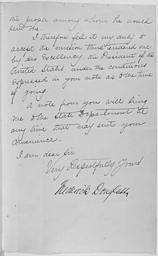 the people among whom he would
I therefore felt it my duty to
accept the mission thus tendered me
by his Excellency, the President of the
United States under the conditions
expressed in your note as to the time
of going.
A note from you will bring
me to the State Department at
any time that may suit your
convenience.
I am dear Sir
Very Respectfully Yours
Frederick Douglass